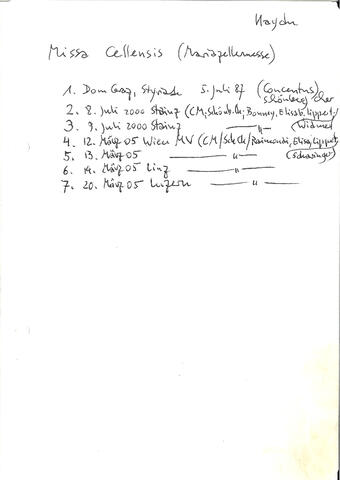 Haydn
Missa Cellensis (Mariazellermesse)
1. Dom Graz, Styriarte 5. Juli 87 (Concentus)
Schönberg Chor
2. 8. Juli 2000 Stainz (CM, Schönb. Ch; Bonney, Elisab, Lippert,
3. 9. Juli 2000 Stainz — " — Widmer)
4. 12. März 05 Wien MV (CM/Sch Ch/ Raimondi, Elisa, Lippert,
5. 13. März 05 — " — Scharinger)
6. 14. März 05 Linz — " —
7. 20. März 05 Luzern — " —